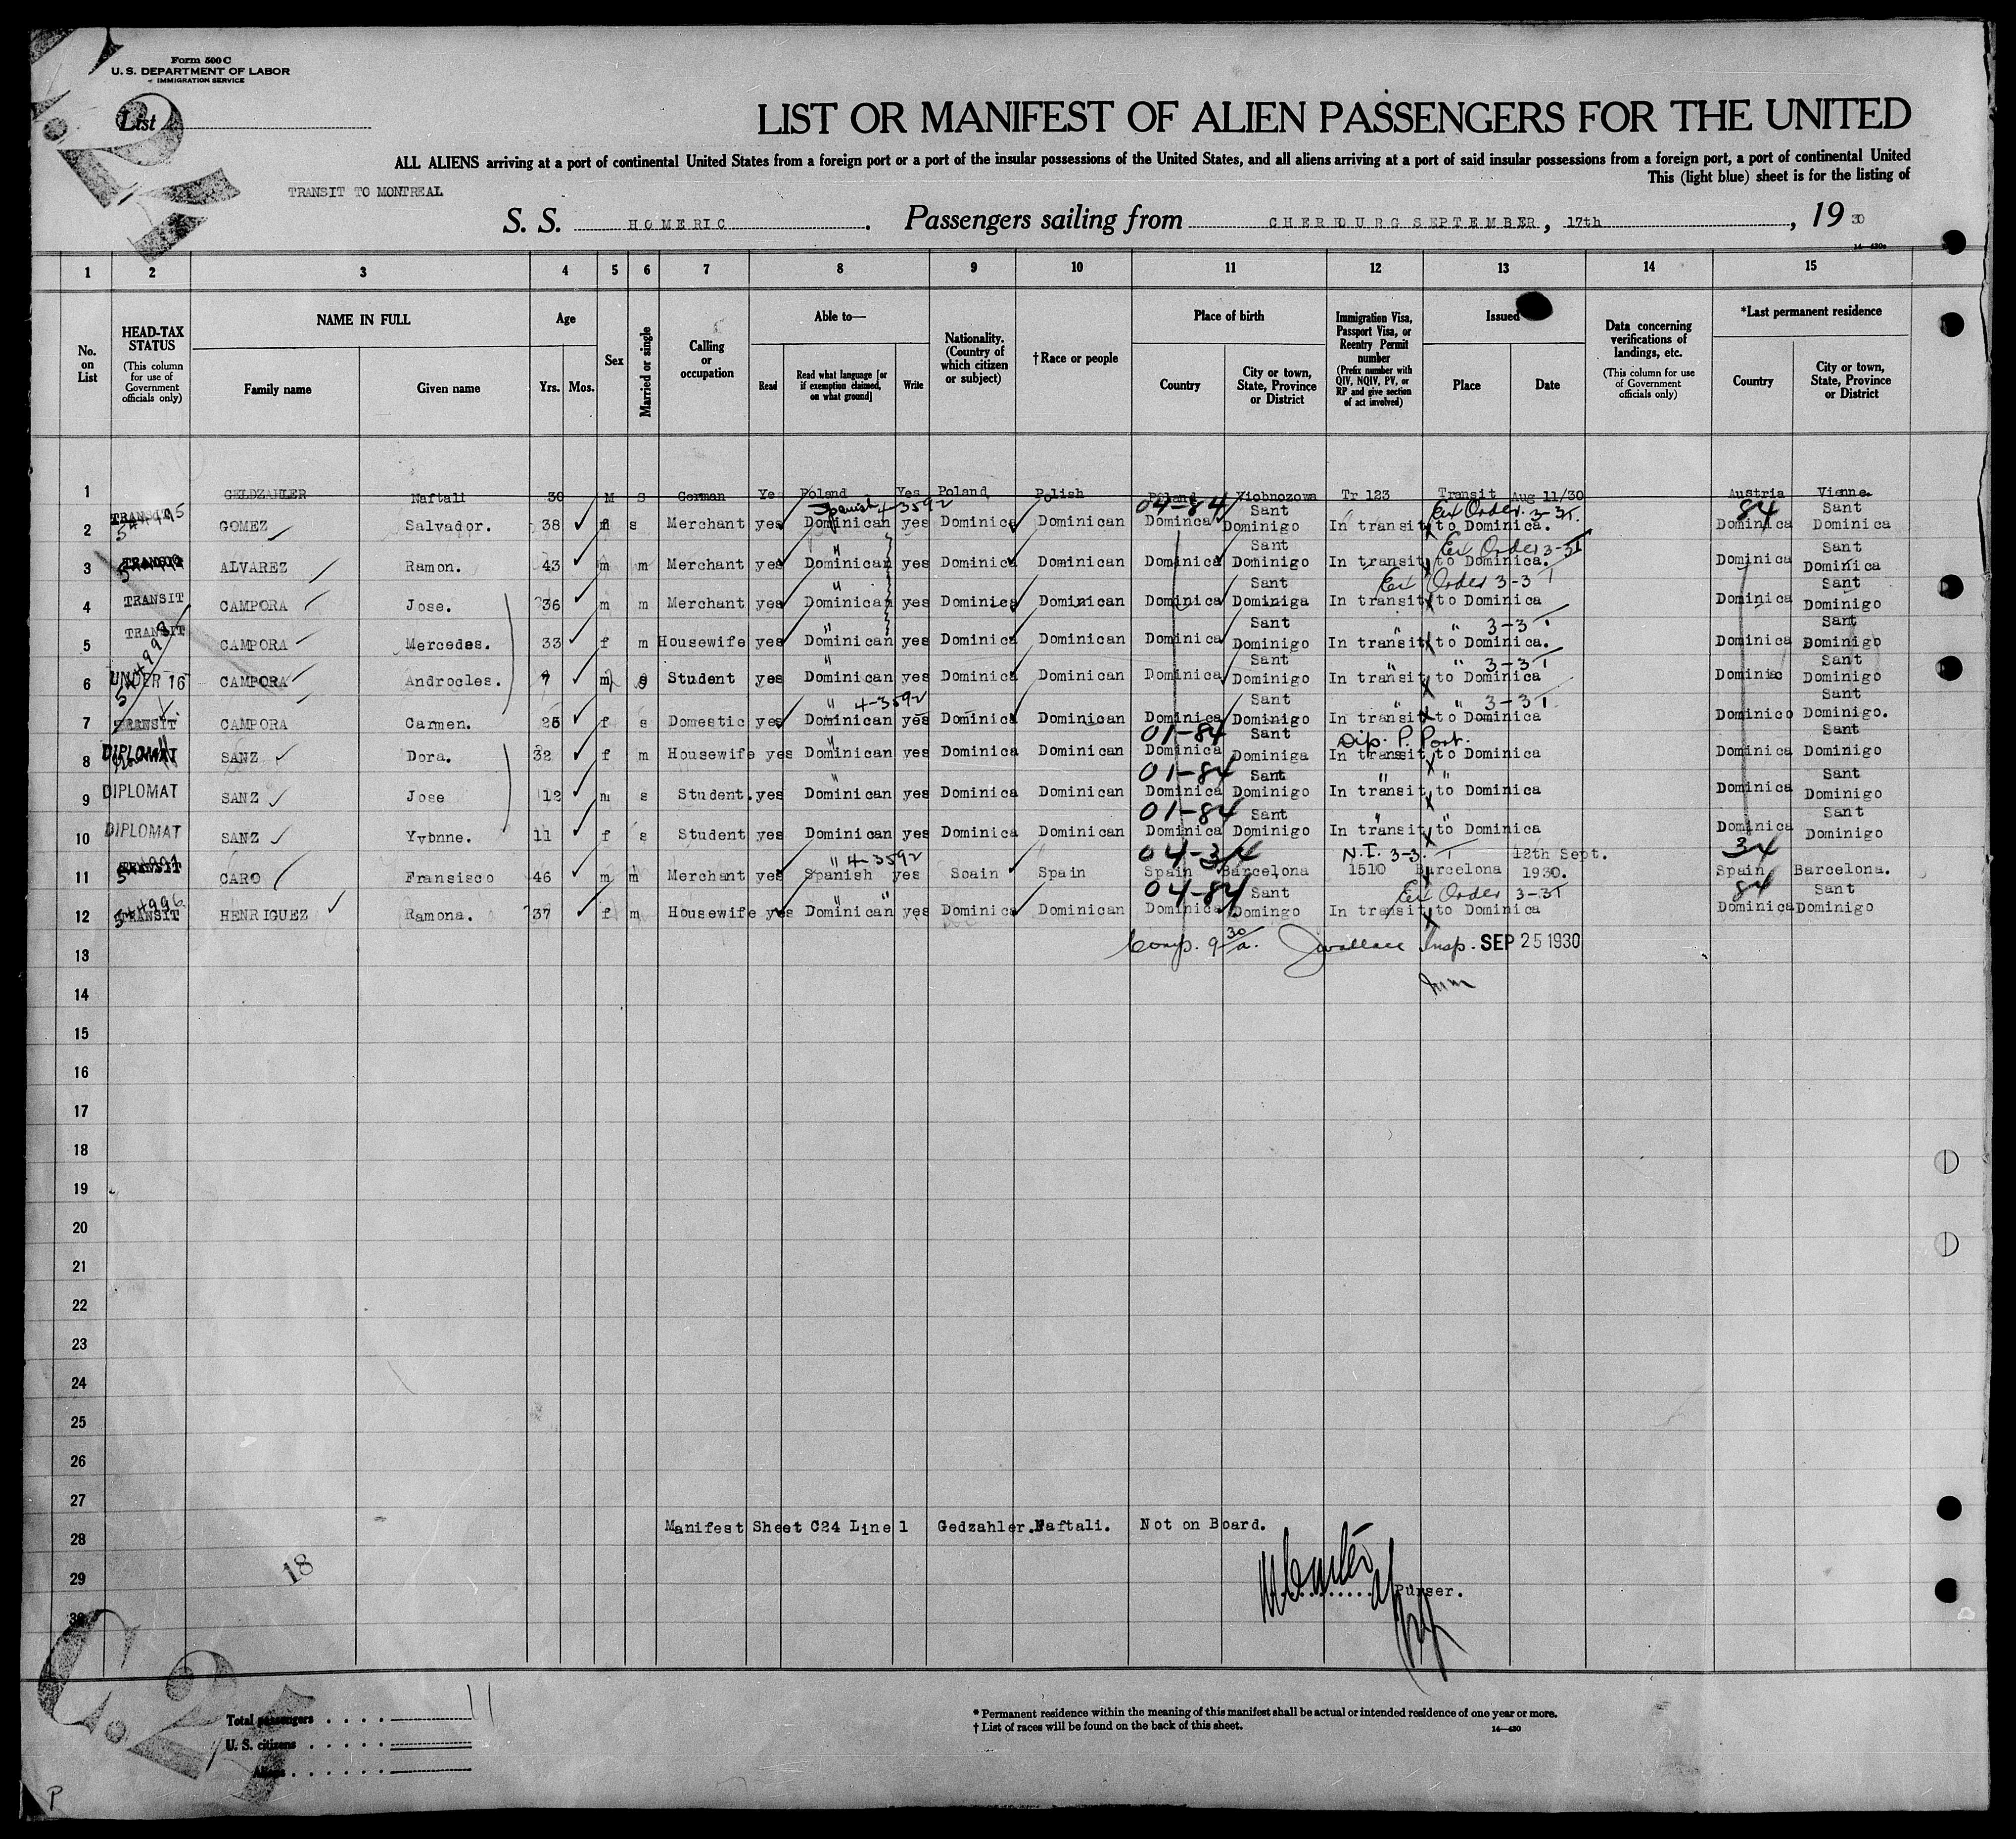 Form 500 C
U. S. DEPARTMENT OF LABOR
IMMIGRATION SERVICE
List
LIST OR MANIFEST OF ALIEN PASSENGERS FOR THE UNITED
ALL ALIENS arriving at a port of continental United States from a foreign port or a port of the insular possessions of the United States, and all aliens arriving at a port of said insular possessions from a foreign port, a port of continental United
This (light blue) sheet is for the listing of
TRANSIT TO MONTREAL
S. S. HOMERIC. Passengers sailing from CHERBOURG SEPTEMBER, 17th, 19 30
1 2 3 4 5 6 7 8 9 10 11 12 13 14 15
No. on List
HEAD-TAX STATUS (This column for use of Government officials only)
NAME IN FULL Family name Given name
Age Yrs. Mos.
Sex
Married or single
Calling or occupation
Able to— Read Read what language [or if exemption claimed, on what ground] Write
Nationality. (Country of which citizen or subject)
†Race or people
Place of birth Country City or town, State, Province or District
Immigration Visa, Passport Visa, or Reentry Permit number (Prefix number with QIV, NQIV, PV, or RP and give section of act involved)
Issued Place Date
Data concerning verifications of landings, etc. (This column for use of Government officials only)
*Last permanent residence Country City or town, State, Province or District
1 GELDZAHLER Naftali 30 M S German Ye Poland Yes Poland Polish Poland Viobnozowa Tr 123 Transit Aug 11/30 Austria Vienne.
Spanish 4-3592 04-84 Sant Ex Order. 3-3T. 84 Sant
2 TRANSIT GOMEZ Salvador. 38 m s Merchant yes Dominican yes Dominica Dominican Dominca Dominigo In transit to Dominica. Dominica Dominica
" Sant Ex Order 3-3T Sant
3 TRANSIT ALVAREZ Ramon. 43 m m Merchant yes Dominican yes Dominica Dominican Dominica Dominigo In transit to Dominica. Dominica Dominica
" Sant Ex Order 3-3T Sant
4 TRANSIT CAMPORA Jose. 36 m m Merchant yes Dominican yes Dominica Dominican Dominica Dominiga In transit to Dominica Dominica Dominigo
" Sant " " 3-3T Sant
5 TRANSIT CAMPORA Mercedes. 33 f m Housewife yes Dominican yes Dominica Dominican Dominica Dominigo In transit to Dominica. Dominica Dominigo
" Sant " " 3-3T Sant
6 UNDER 16 CAMPORA Androcles. 7 m s Student yes Dominican yes Dominica Dominican Dominica Dominigo In transit to Dominica Dominigo
" 4-3592 Sant " " 3-3T Sant
7 TRANSIT CAMPORA Carmen. 25 f s Domestic yes Dominican yes Dominica Dominican Dominica Dominigo In transit to Dominica Dominico Dominigo.
" 01-84 Sant Dip. P. Port. Sant
8 DIPLOMAT SANZ Dora. 32 f m Housewife yes Dominican yes Dominica Dominican Dominica Dominiga In transit to Dominica Dominica Dominigo
" 01-84 Sant " " Sant
9 DIPLOMAT SANZ Jose 12 m s Student. yes Dominican yes Dominica Dominican Dominica Dominigo In transit to Dominica Dominica Dominigo
01-84 Sant " " Sant
10 DIPLOMAT SANZ Yvbnne. 11 f s Student yes Dominican yes Dominica Dominican Dominica Dominigo In transit to Dominica Dominica Dominigo
" 4-3592 04-34 N.I. 3-3. T 12th Sept. 34
11 TRANSIT CARO Fransisco 46 m m Merchant yes Spanish yes Scain Spain Spain Barcelona 1510 Barcelona 1930. Spain Barcelona.
04-84 Sant Ex Order 3-3T 84 Sant
12 544996 TRANSIT HENRIGUEZ Ramona. 37 f m Housewife yes Dominican yes Dominica Dominican Dominica Domingo In transit to Dominica Dominica Dominigo
Comp. 9 30/a. J Wallace Insp. SEP 25 1930
13
14
15
16
17
18
19
20
21
22
23
24
25
26
27
Manifest Sheet C24 Line 1 Gedzahler. Naftali. Not on Board.
28
29 18
Purser.
30
C.24
Total passengers . . . . 11
U. S. citizens . . . . .
Aliens . . . . . .
* Permanent residence within the meaning of this manifest shall be actual or intended residence of one year or more.
† List of races will be found on the back of this sheet. 14—430
P